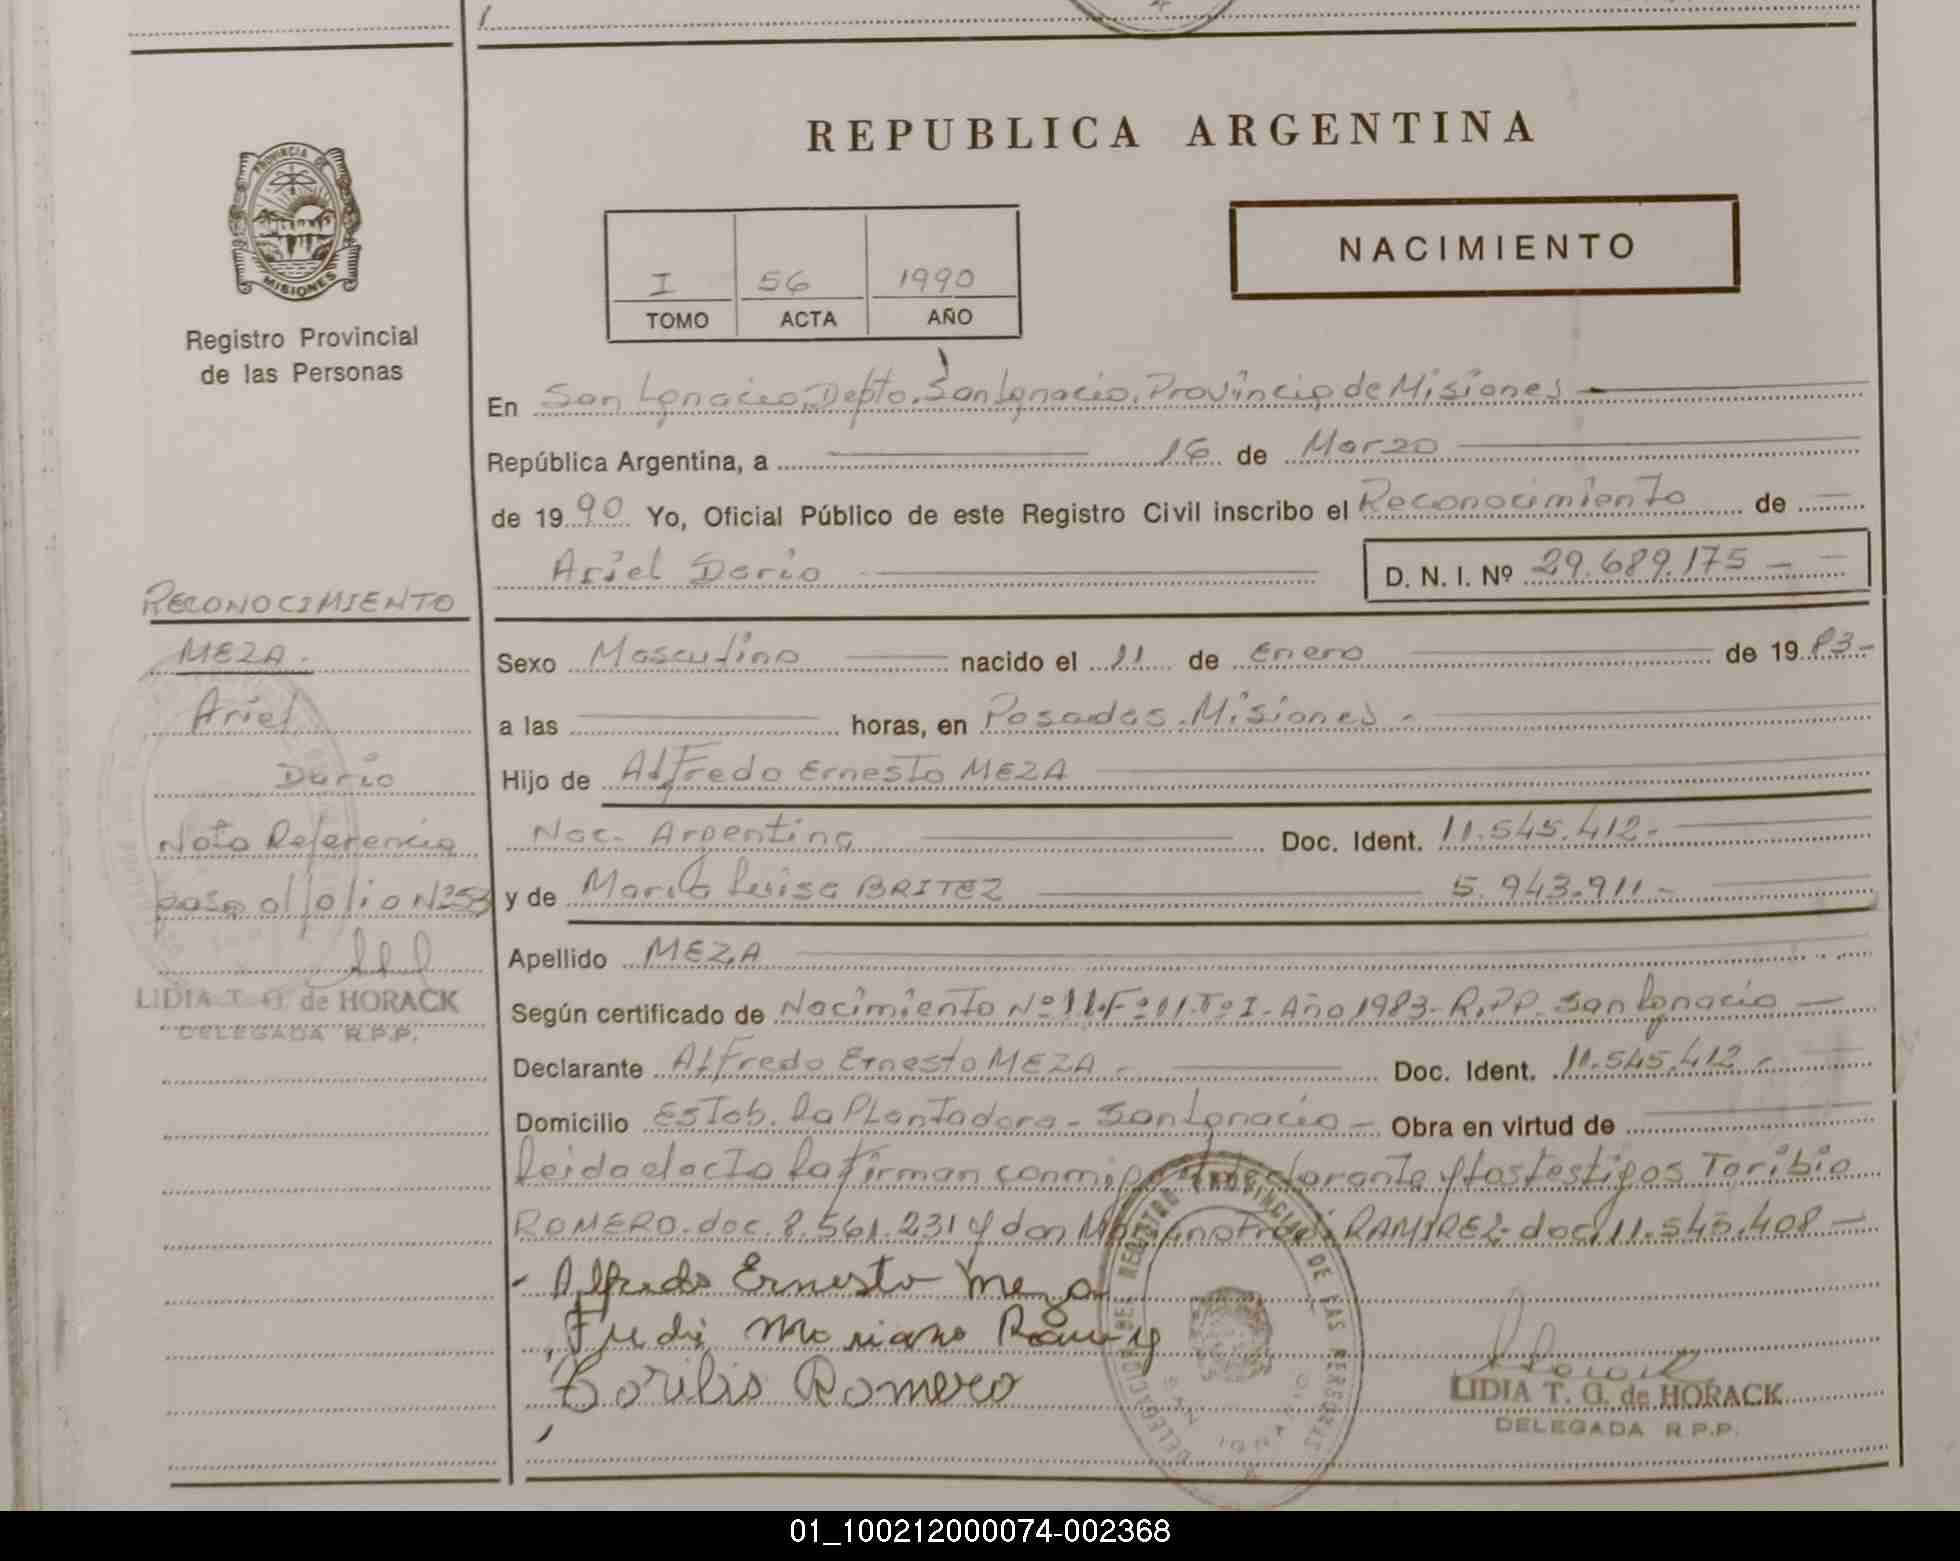 REPUBLICA ARGENTINA
NACIMIENTO
PROVINCIA DE
MISIONES
Registro Provincial
de las Personas
I 56 1990
TOMO ACTA AÑO
En San Ignacio, Depto. San Ignacio. Provincia de Misiones
República Argentina, a 16 de Marzo
de 1990 Yo, Oficial Público de este Registro Civil inscribo el Reconocimiento de
Ariel Dario D. N. I. Nº 29.689.175 -
RECONOCIMIENTO
MEZA.
Ariel
Dario
Nota Referencia
pasa al folio Nº253
LIDIA T. G. de HORACK
DELEGADA R.P.P.
Sexo Masculino nacido el 11 de Enero de 1983-
a las horas, en Posadas. Misiones -
Hijo de Alfredo Ernesto MEZA
Nac. Argentina Doc. Ident. 11.545.412-
y de Maria Luisa BRITEZ 5.943.911-
Apellido MEZA
Según certificado de Nacimiento Nº11.Fº011.TºI-Año 1983-R.P.P. San Ignacio -
Declarante Alfredo Ernesto MEZA - Doc. Ident. 11.545.412 -
Domicilio Estab. La Plantadora - San Ignacio - Obra en virtud de
Leida el acta la firman conmigo el declarante y los testigos Toribio
ROMERO. doc. 8.561.231 y don Mariano Fredi RAMIREZ- doc. 11.545.408 -
- Alfredo Ernesto Meza
Fredi Mariano Ramirez
Toribio Romero
DELEGACION DEL REGISTRO PROVINCIAL DE LAS PERSONAS
SAN IGNACIO
LIDIA T. G. de HORACK
DELEGADA R.P.P.
01_100212000074-002368